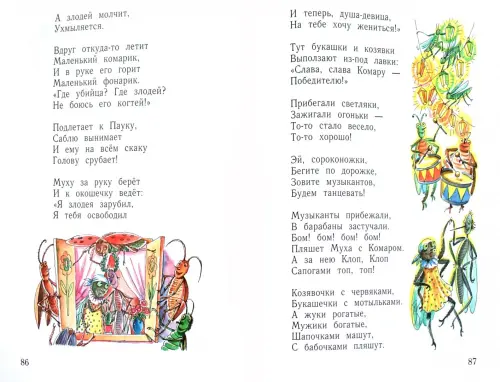 А злодей молчит,
Ухмыляется.
Вдруг откуда-то летит
Маленький комарик,
И в руке его горит
Маленький фонарик.
«Где убийца? Где злодей?
Не боюсь его когтей!»
Подлетает к Пауку,
Саблю вынимает
И ему на всём скаку
Голову срубает!
Муху за руку берёт
И к окошечку ведёт:
«Я злодея зарубил,
Я тебя освободил
86
И теперь, душа-девица,
На тебе хочу жениться!»
Тут букашки и козявки
Выползают из-под лавки:
«Слава, слава Комару —
Победителю!»
Прибегали светляки,
Зажигали огоньки —
То-то стало весело,
То-то хорошо!
Эй, сороконожки,
Бегите по дорожке,
Зовите музыкантов,
Будем танцевать!
Музыканты прибежали,
В барабаны застучали.
Бом! бом! бом! бом!
Пляшет Муха с Комаром.
А за нею Клоп, Клоп
Сапогами топ, топ!
Козявочки с червяками,
Букашечки с мотыльками.
А жуки рогатые,
Мужики богатые,
Шапочками машут,
С бабочками пляшут.
87